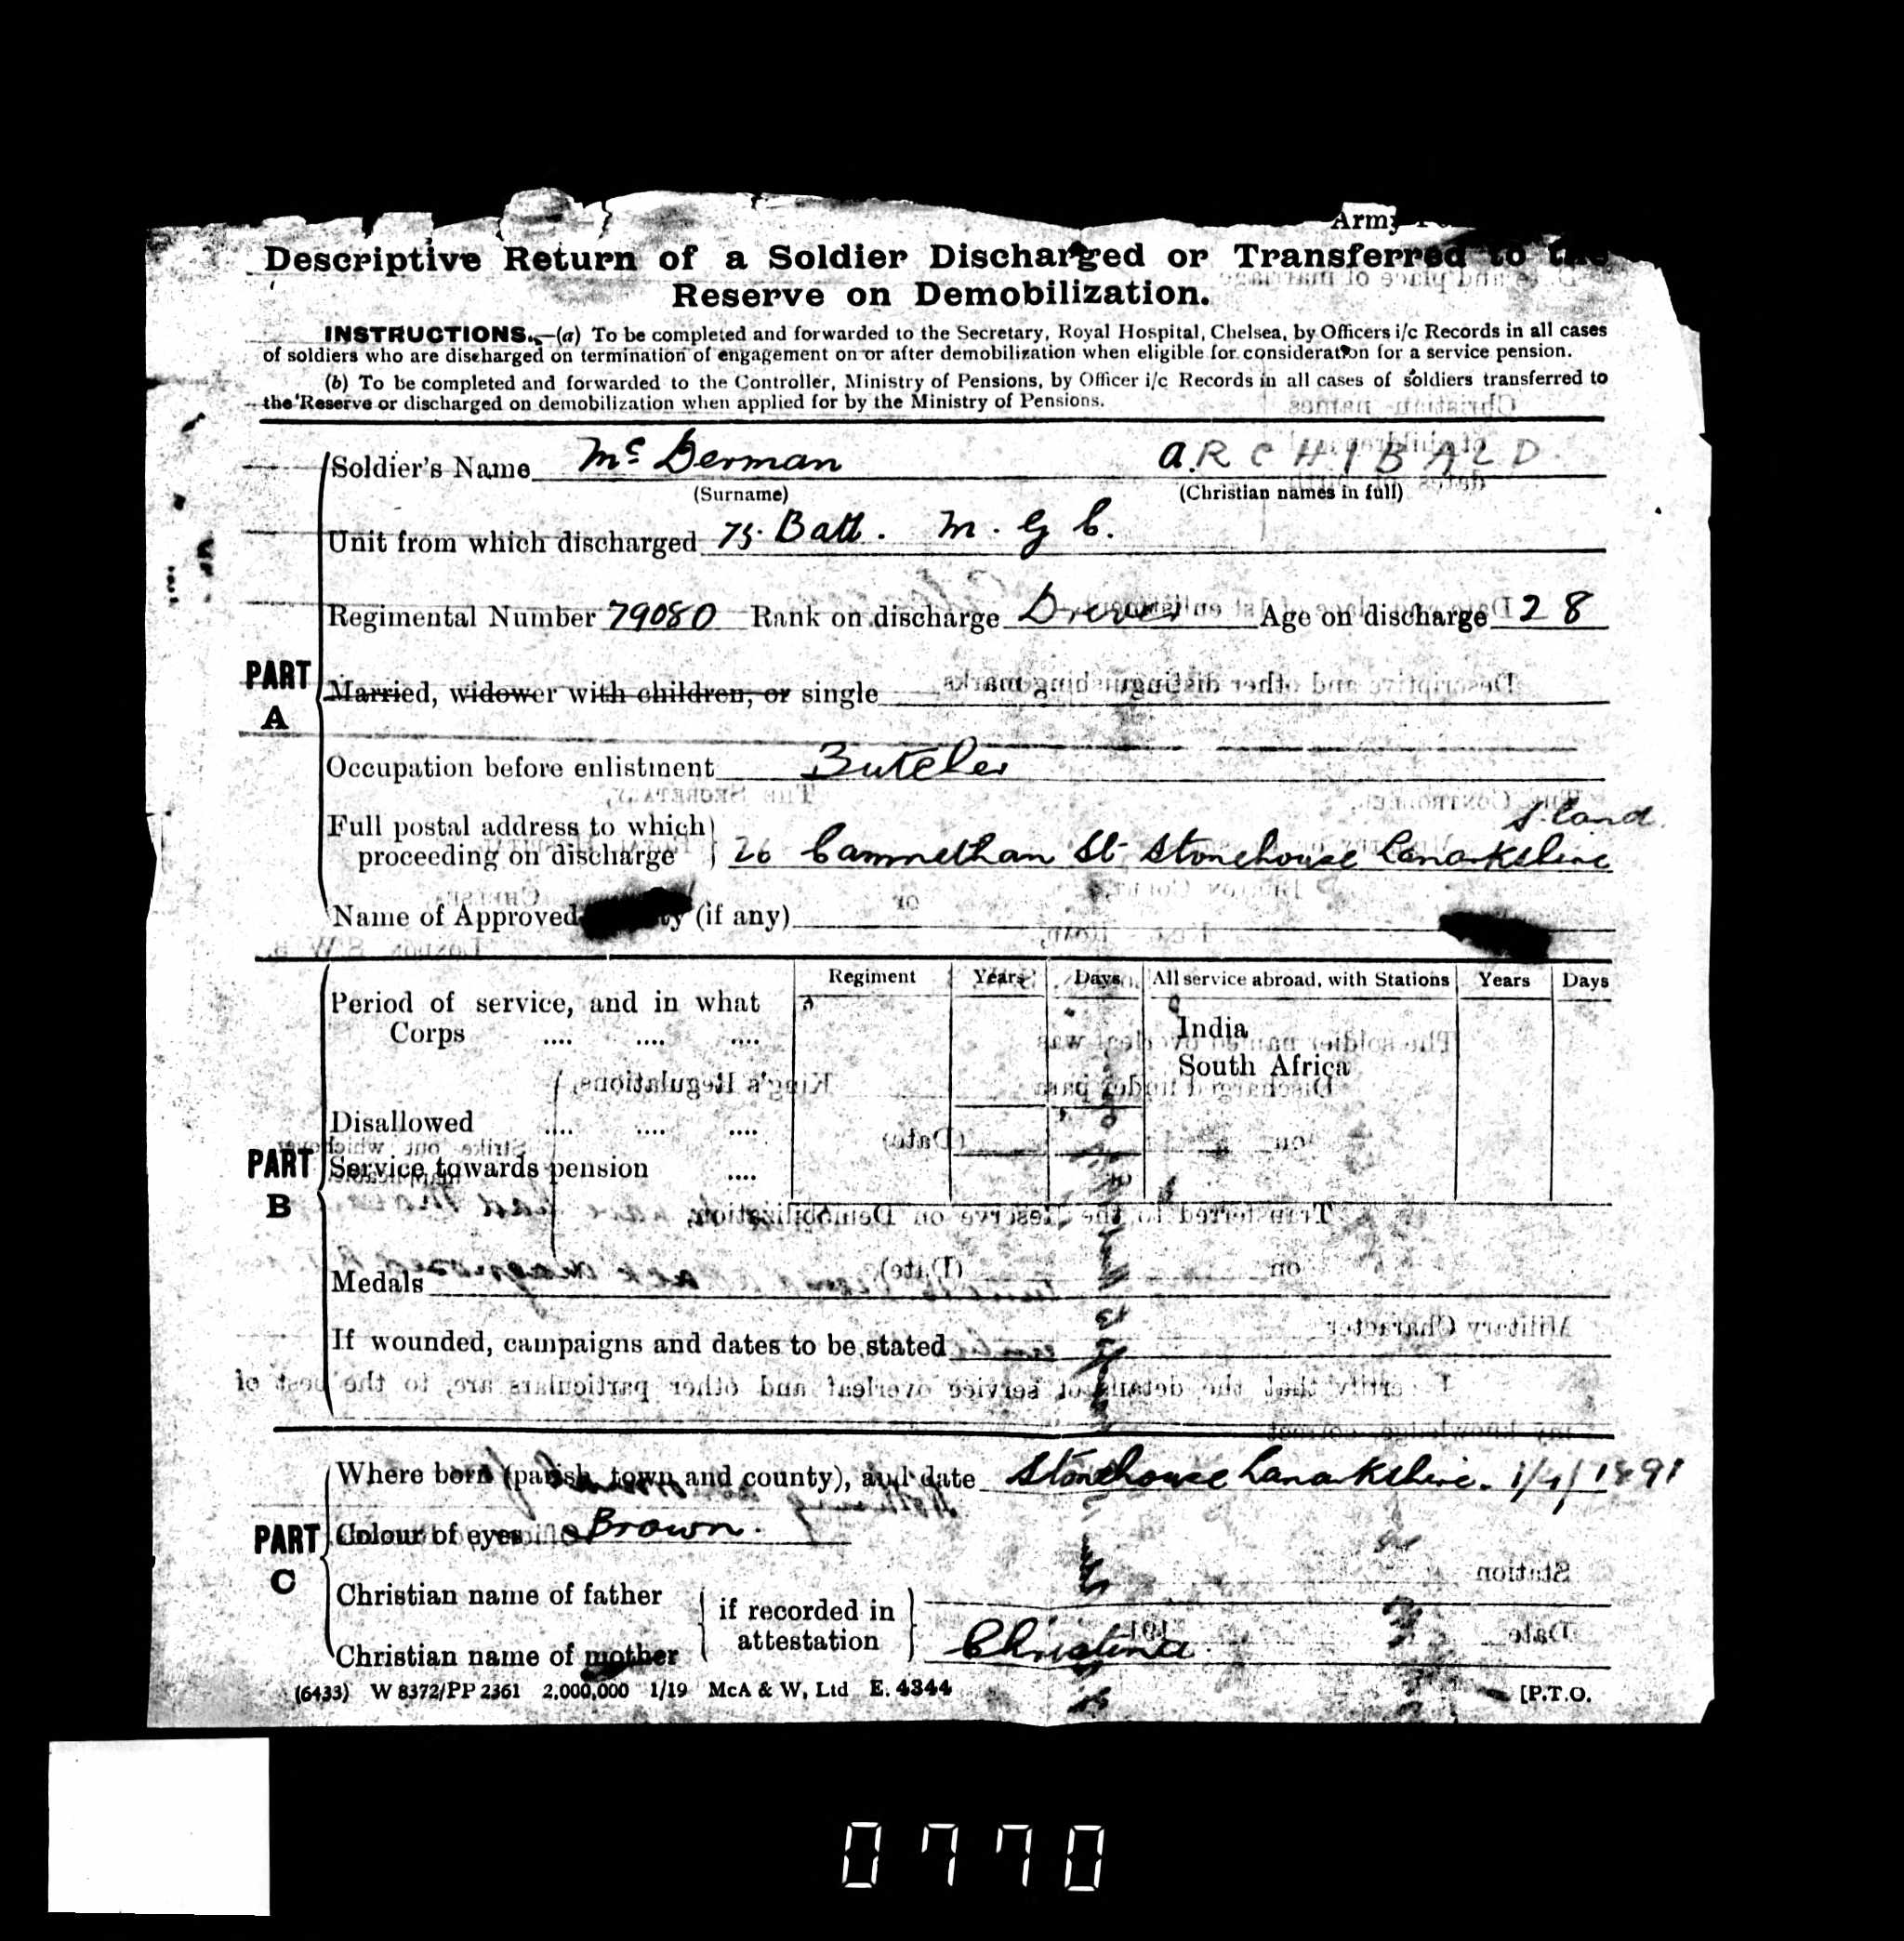 Army
Descriptive Return of a Soldier Discharged or Transferred to the
Reserve on Demobilization.
INSTRUCTIONS.—(a) To be completed and forwarded to the Secretary, Royal Hospital, Chelsea, by Officers i/c Records in all cases
of soldiers who are discharged on termination of engagement on or after demobilization when eligible for consideration for a service pension.
(b) To be completed and forwarded to the Controller, Ministry of Pensions, by Officer i/c Records in all cases of soldiers transferred to
the Reserve or discharged on demobilization when applied for by the Ministry of Pensions.
PART A
Soldier's Name McDerman A.RCHIBALD
(Surname) (Christian names in full)
Unit from which discharged Batt. M. G C.
Regimental Number 79080 Rank on discharge Driver Age on discharge 28
Married, widower with children, or single
Occupation before enlistment Butcher
Full postal address to which
proceeding on discharge 26 Camnethan St Stonehouse Lanarkshire
Name of Approved (if any)
PART B
Regiment Years Days All service abroad, with Stations Years Days
Period of service, and in what
Corps .... .... ....
India
South Africa
Disallowed .... .... ....
Service towards pension ....
Medals
If wounded, campaigns and dates to be stated
PART C
Where born (parish, town and county), and date Stonehouse Lanarkshire. 1/4/1891
Colour of eyes Brown.
Christian name of father
if recorded in
attestation
Christian name of mother Christina
(6433) W 8372/PP 2361 2,000,000 1/19 McA & W, Ltd E. 4344 [P.T.O.
0770